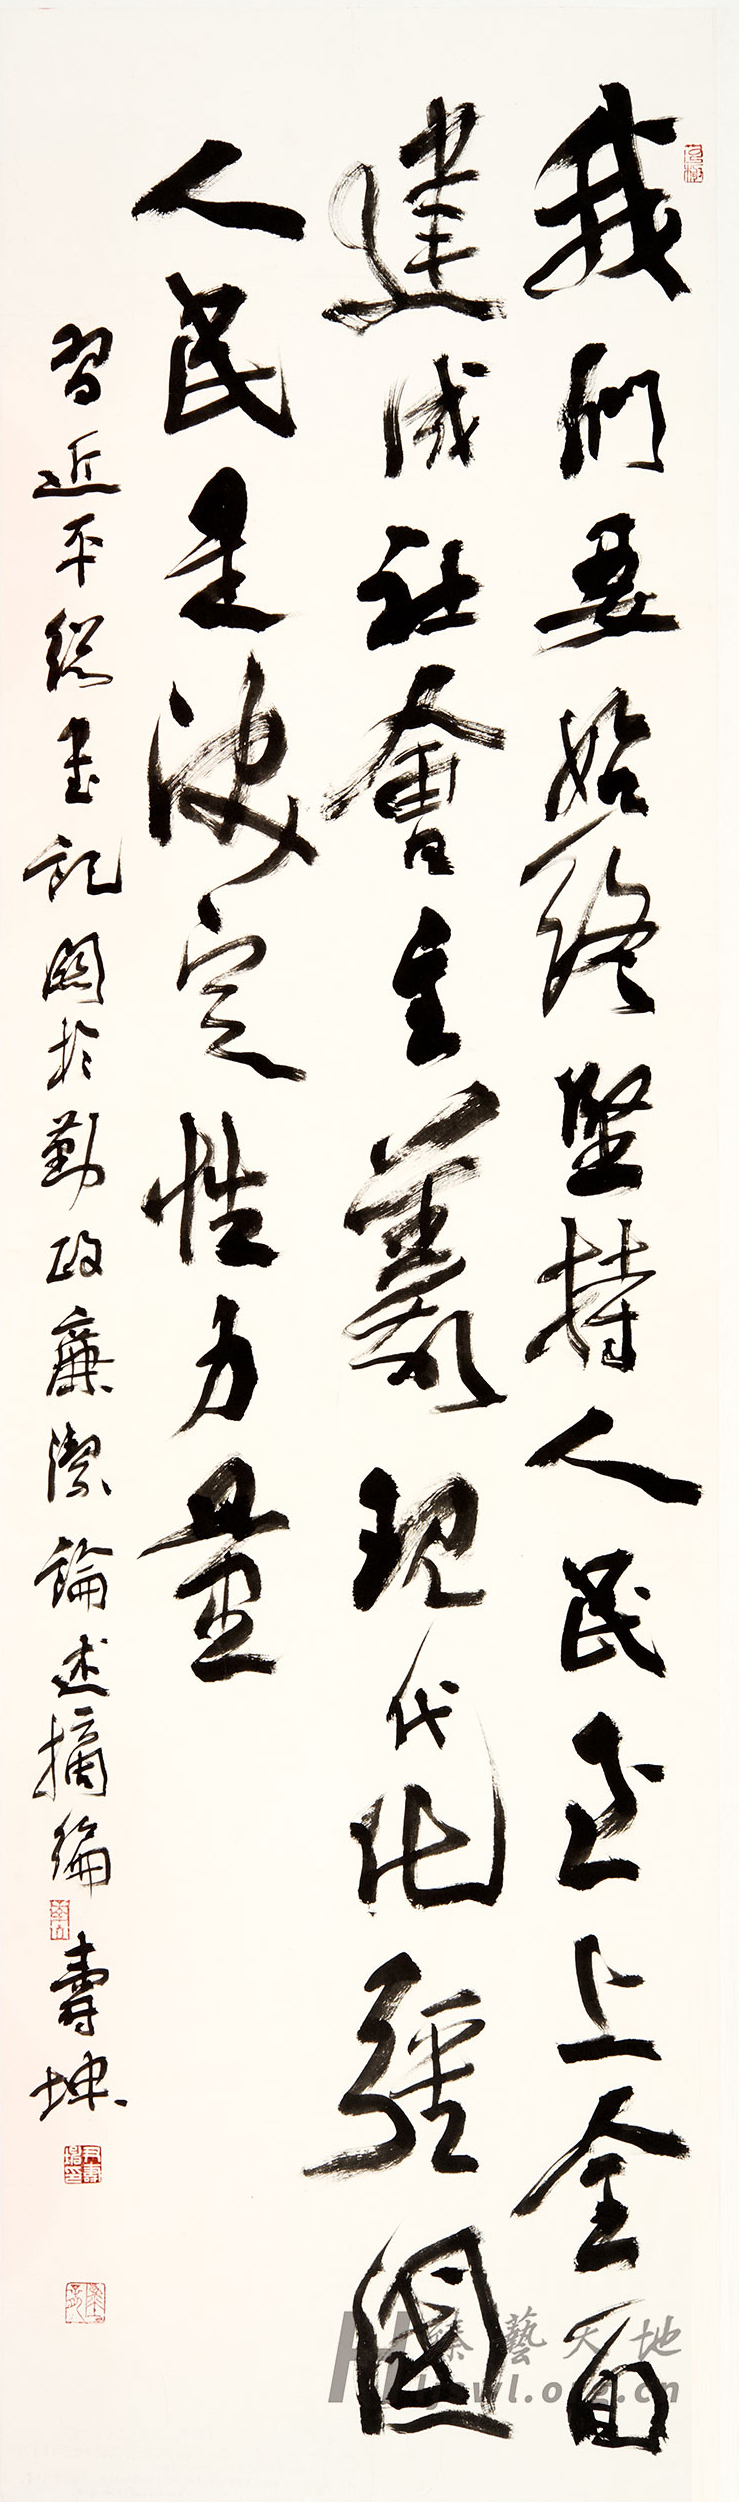 我們要始終堅持人民至上全面
建成社會主義現代化强國
人民是決定性力量
習近平總書記關於勤政廉潔論述摘編
壽坤
臻藝天地